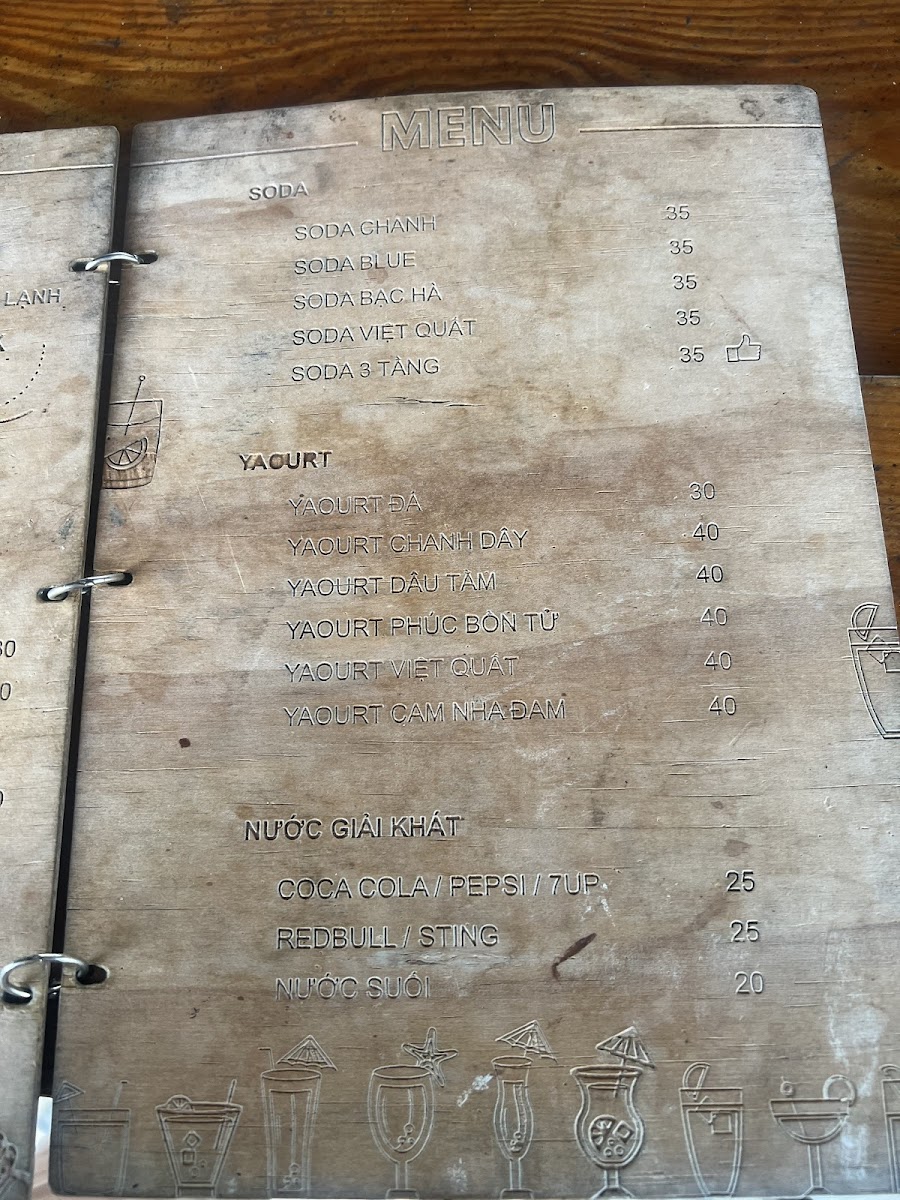 MENU
SODA
SODA CHANH 35
SODA BLUE 35
SODA BẠC HÀ 35
SODA VIỆT QUẤT 35
SODA 3 TẦNG 35
YAOURT
YAOURT ĐÁ 30
YAOURT CHANH DÂY 40
YAOURT DÂU TẰM 40
YAOURT PHÚC BỒN TỬ 40
YAOURT VIỆT QUẤT 40
YAOURT CAM NHA ĐAM 40
NƯỚC GIẢI KHÁT
COCA COLA / PEPSI / 7UP 25
REDBULL / STING 25
NƯỚC SUỐI 20
LẠNH